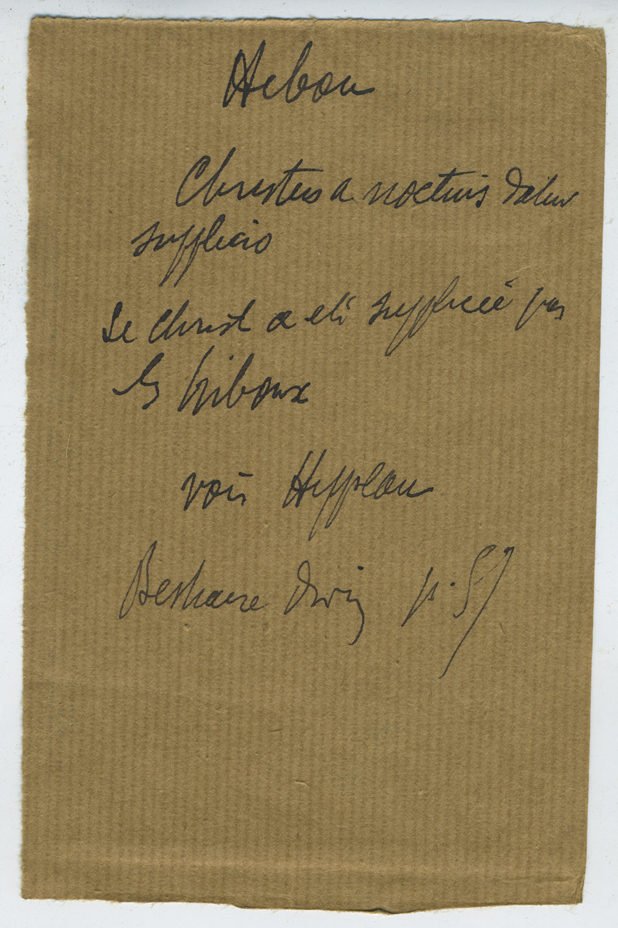 Hibou
Christus a noctuis datur
supplicio
Le Christ a été supplicié par
les hiboux
voir
Bestiaire divin p. 57